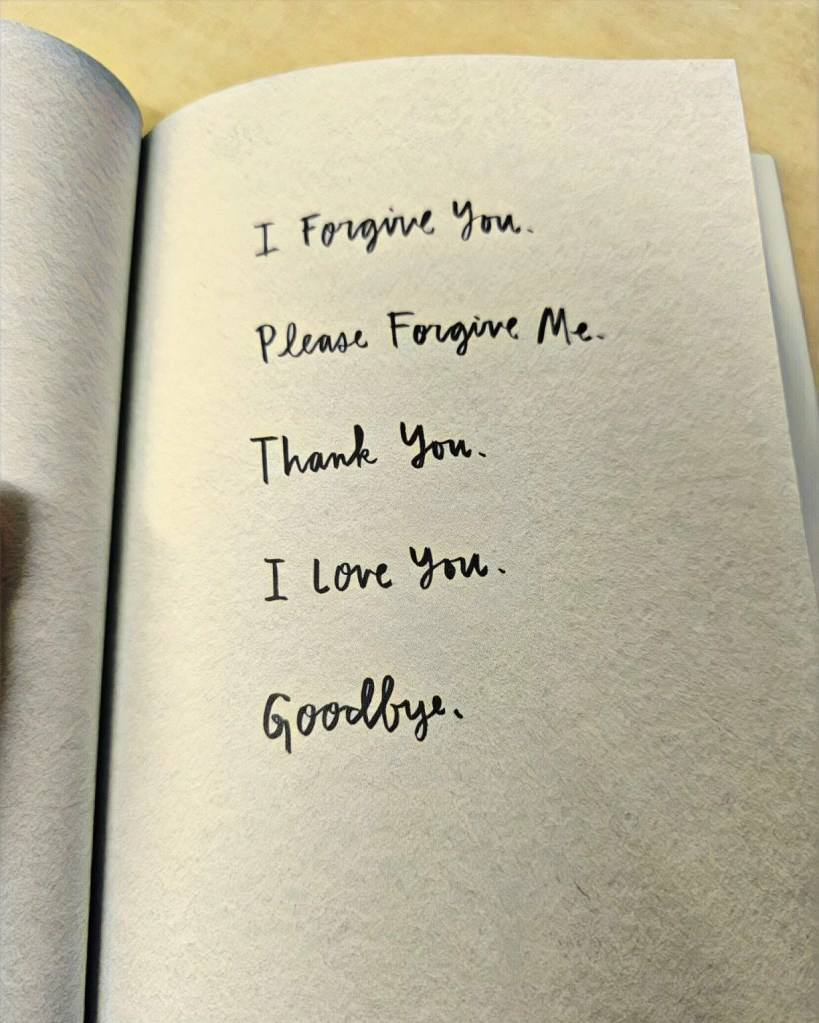 I Forgive You.
Please Forgive Me.
Thank You.
I Love You.
Goodbye.